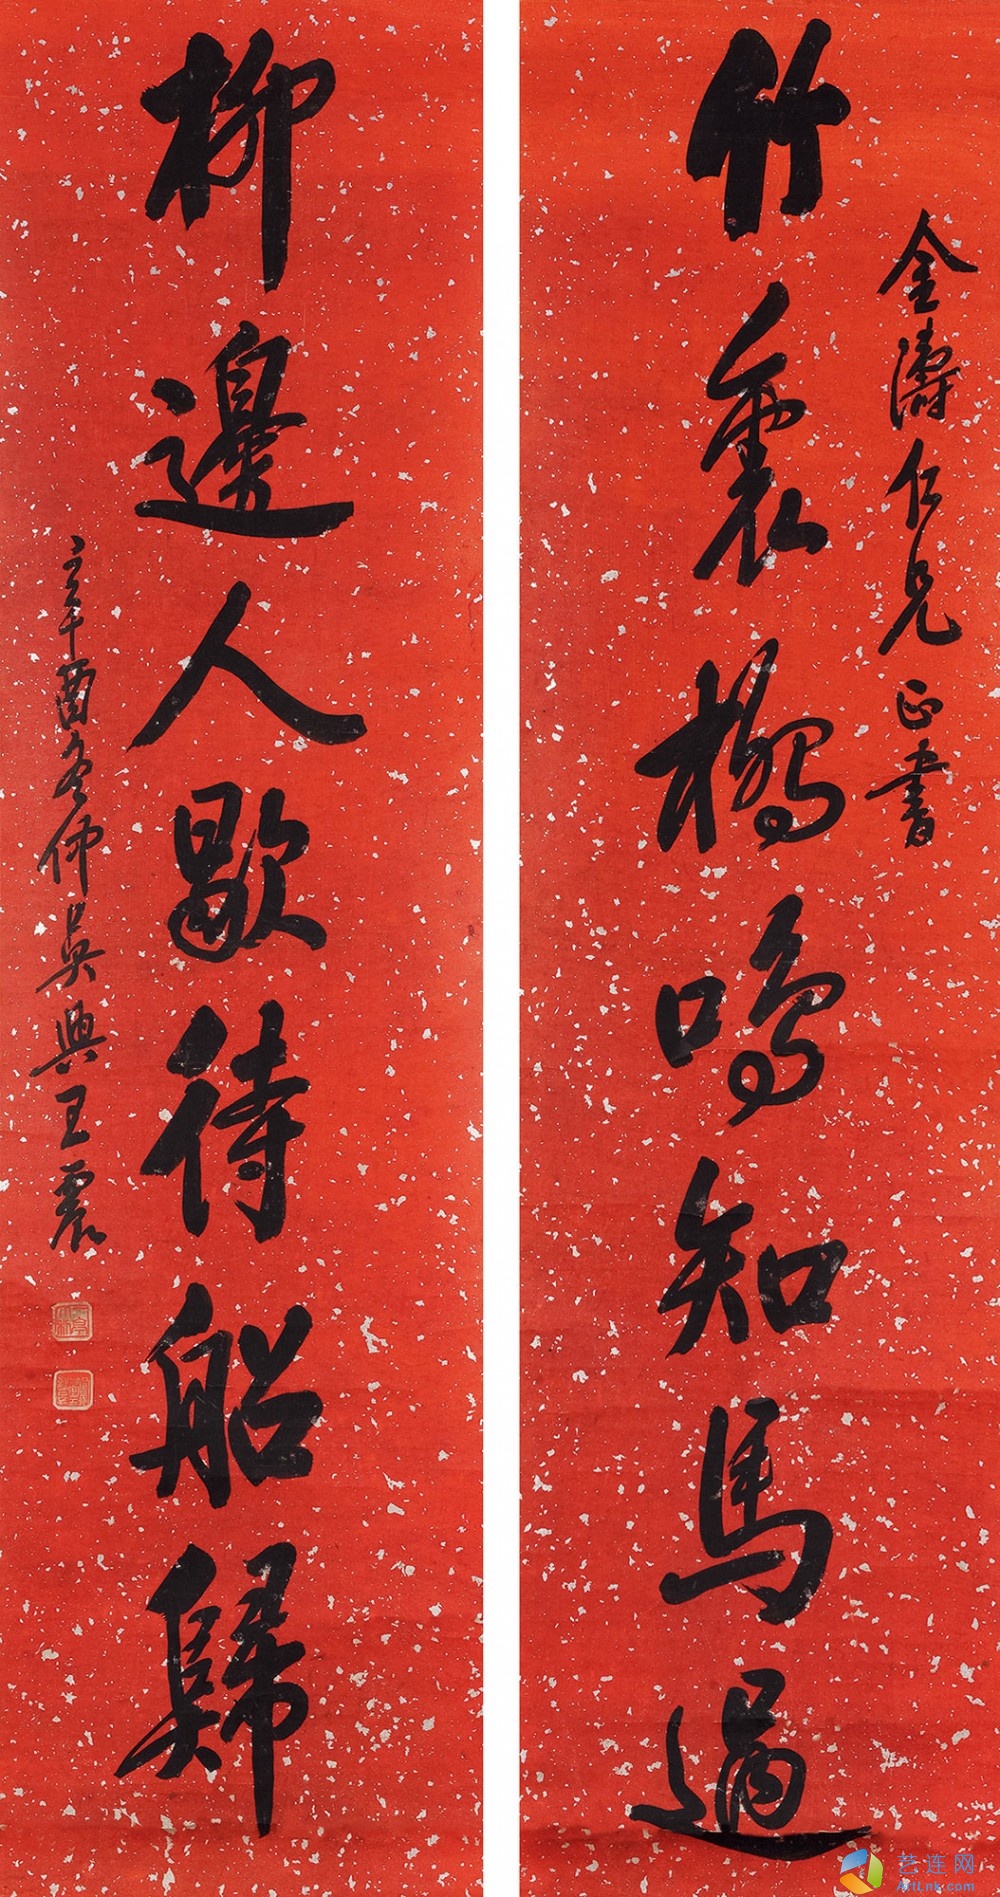 金濤仁兄正書
竹裏橋鳴知馬過
柳邊人歇待船歸
辛酉冬仲吳興王震
艺连网
ArtLnk.com